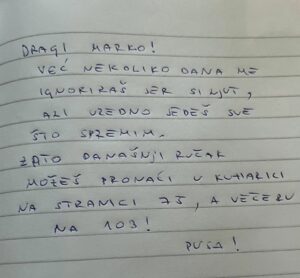 DRAGI MARKO!
VEĆ NEKOLIKO DANA ME
IGNORIRAŠ JER SI LJUT,
ALI UREDNO JEDEŠ SVE
ŠTO SPREMIM.
ZATO DANAŠNJI RUČAK
MOŽEŠ PRONAĆI U KUHARICI
NA STRANICI 75, A VEČERU
NA 103!
PUSA!